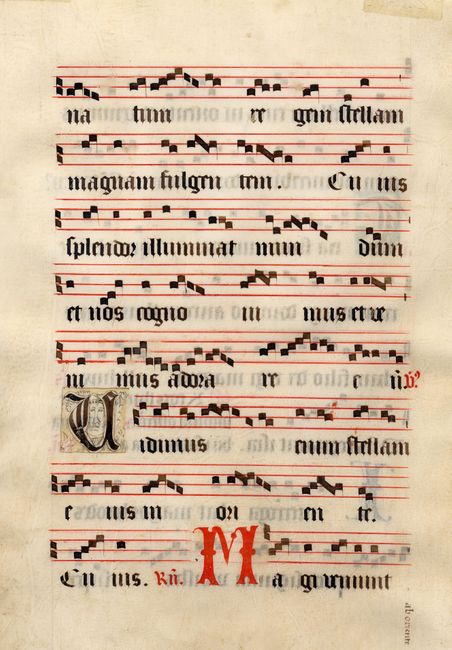 na tum re gem stellam
magnam fulgen tem. Cu ius
splendor illuminat mun dum
et nos cogno ui mus et ue
ni mus adora re e ū. ℣
Uidimus enim stellam
e ius in ori en te.
Cu ius. M a gi veniunt
ab oriente